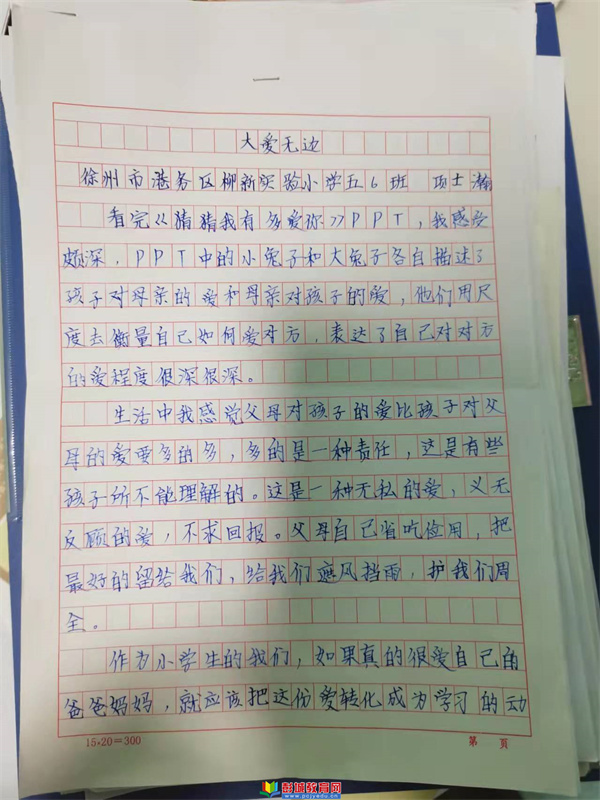 大爱无边
徐州市港务区柳新实验小学五6班 项士瀚
看完《猜猜我有多爱你》PPT，我感受
颇深，PPT中的小兔子和大兔子各自描述了
孩子对母亲的爱和母亲对孩子的爱，他们用尺
度去衡量自己如何爱对方，表达了自己对对方
的爱程度很深很深。
生活中我感觉父母对孩子的爱比孩子对父
母的爱要多的多，多的是一种责任，这是有些
孩子所不能理解的。这是一种无私的爱，义无
反顾的爱，不求回报。父母自己省吃俭用，把
最好的留给我们，给我们遮风挡雨，护我们周
全。
作为小学生的我们，如果真的很爱自己的
爸爸妈妈，就应该把这份爱转化成为学习的动
15×20=300 第 頁
彭城教育网
www.pcjyedu.cn